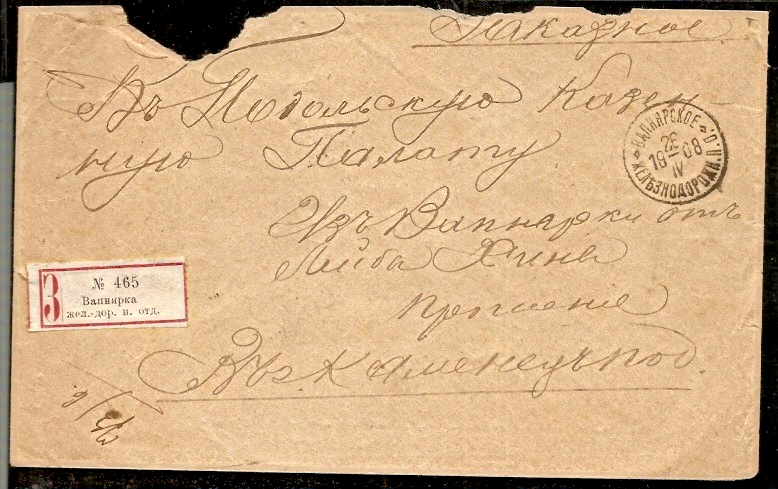 Заказное
Въ Подольскую Казен-
ную Палату
Изъ Вапнярки отъ
Лейба
прошение
Въ г Каменецъ под.
ВАПНЯРСКОЕ П.О.
26
19 08
IV
ЖЕЛѢЗНОДОРОЖН.
З
№ 465
Вапнярка
жел.-дор. п. отд.